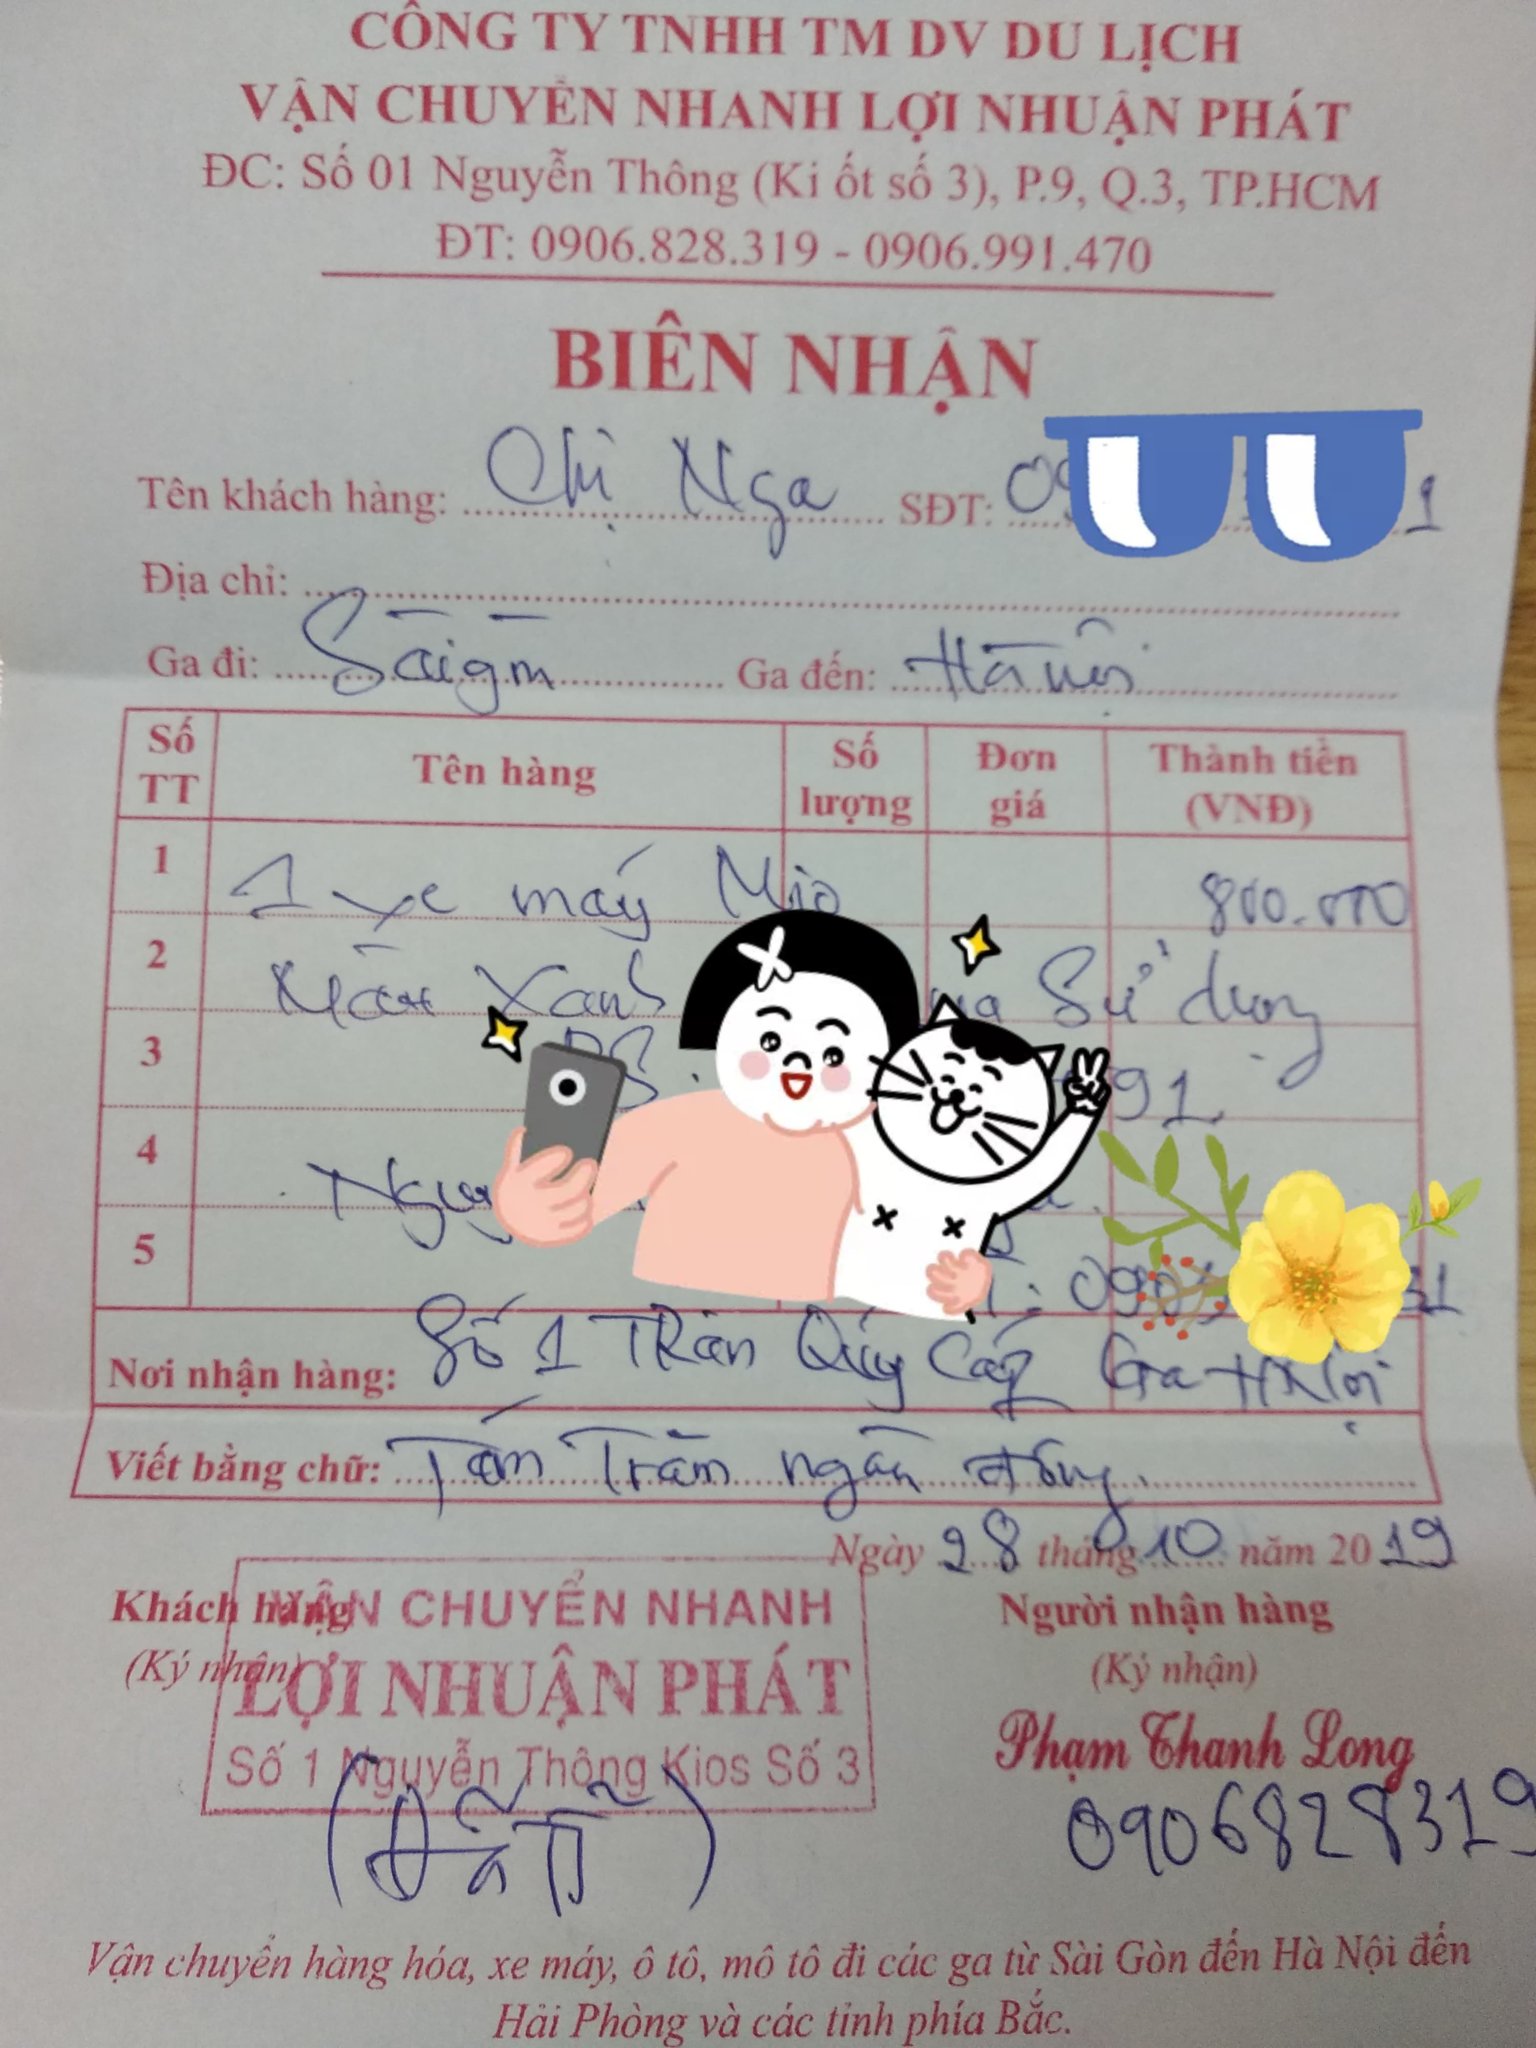 CÔNG TY TNHH TM DV DU LỊCH
VẬN CHUYỂN NHANH LỢI NHUẬN PHÁT
ĐC: Số 01 Nguyễn Thông (Ki ốt số 3), P.9, Q.3, TP.HCM
ĐT: 0906.828.319 - 0906.991.470
BIÊN NHẬN
Tên khách hàng: Chị Nga SĐT: 09 1
Địa chỉ:
Ga đi: Sài gòn Ga đến: Hà nội
Số TT Tên hàng Số lượng Đơn giá Thành tiền (VNĐ)
1 1 xe máy Mio 800.000
2 Màu Xanh Sử dụng
3 91
4
5 31
Nơi nhận hàng: Số 1 Trần Quý Cáp Ga H Nội
Viết bằng chữ: Tám Trăm ngàn đồng.
Ngày 28 tháng 10 năm 2019
Khách hàng
(Ký nhận)
VẬN CHUYỂN NHANH
LỢI NHUẬN PHÁT
Số 1 Nguyễn Thông Kios Số 3
Người nhận hàng
(Ký nhận)
Phạm Thanh Long
0906828319
(Đã TT)
Vận chuyển hàng hóa, xe máy, ô tô, mô tô đi các ga từ Sài Gòn đến Hà Nội đến
Hải Phòng và các tỉnh phía Bắc.